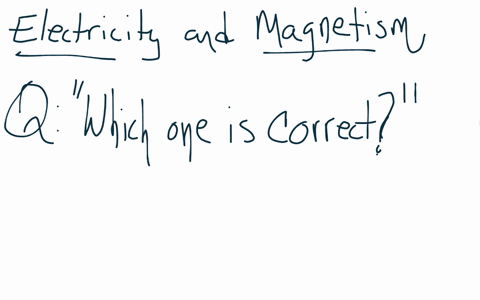 Electricity and Magnetism
Q: "Which one is correct?"